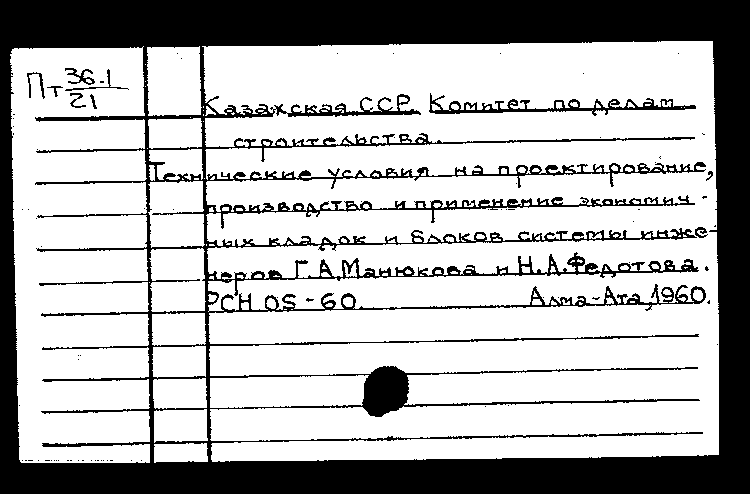 Пт 36.1
21
Казахская ССР. Комитет по делам
строительства.
Технические условия на проектирование,
производство и применение экономич-
ных кладок и блоков системы инже-
неров Г.А.Манюкова и Н.А.Федотова.
РСН 05-60. Алма-Ата, 1960.